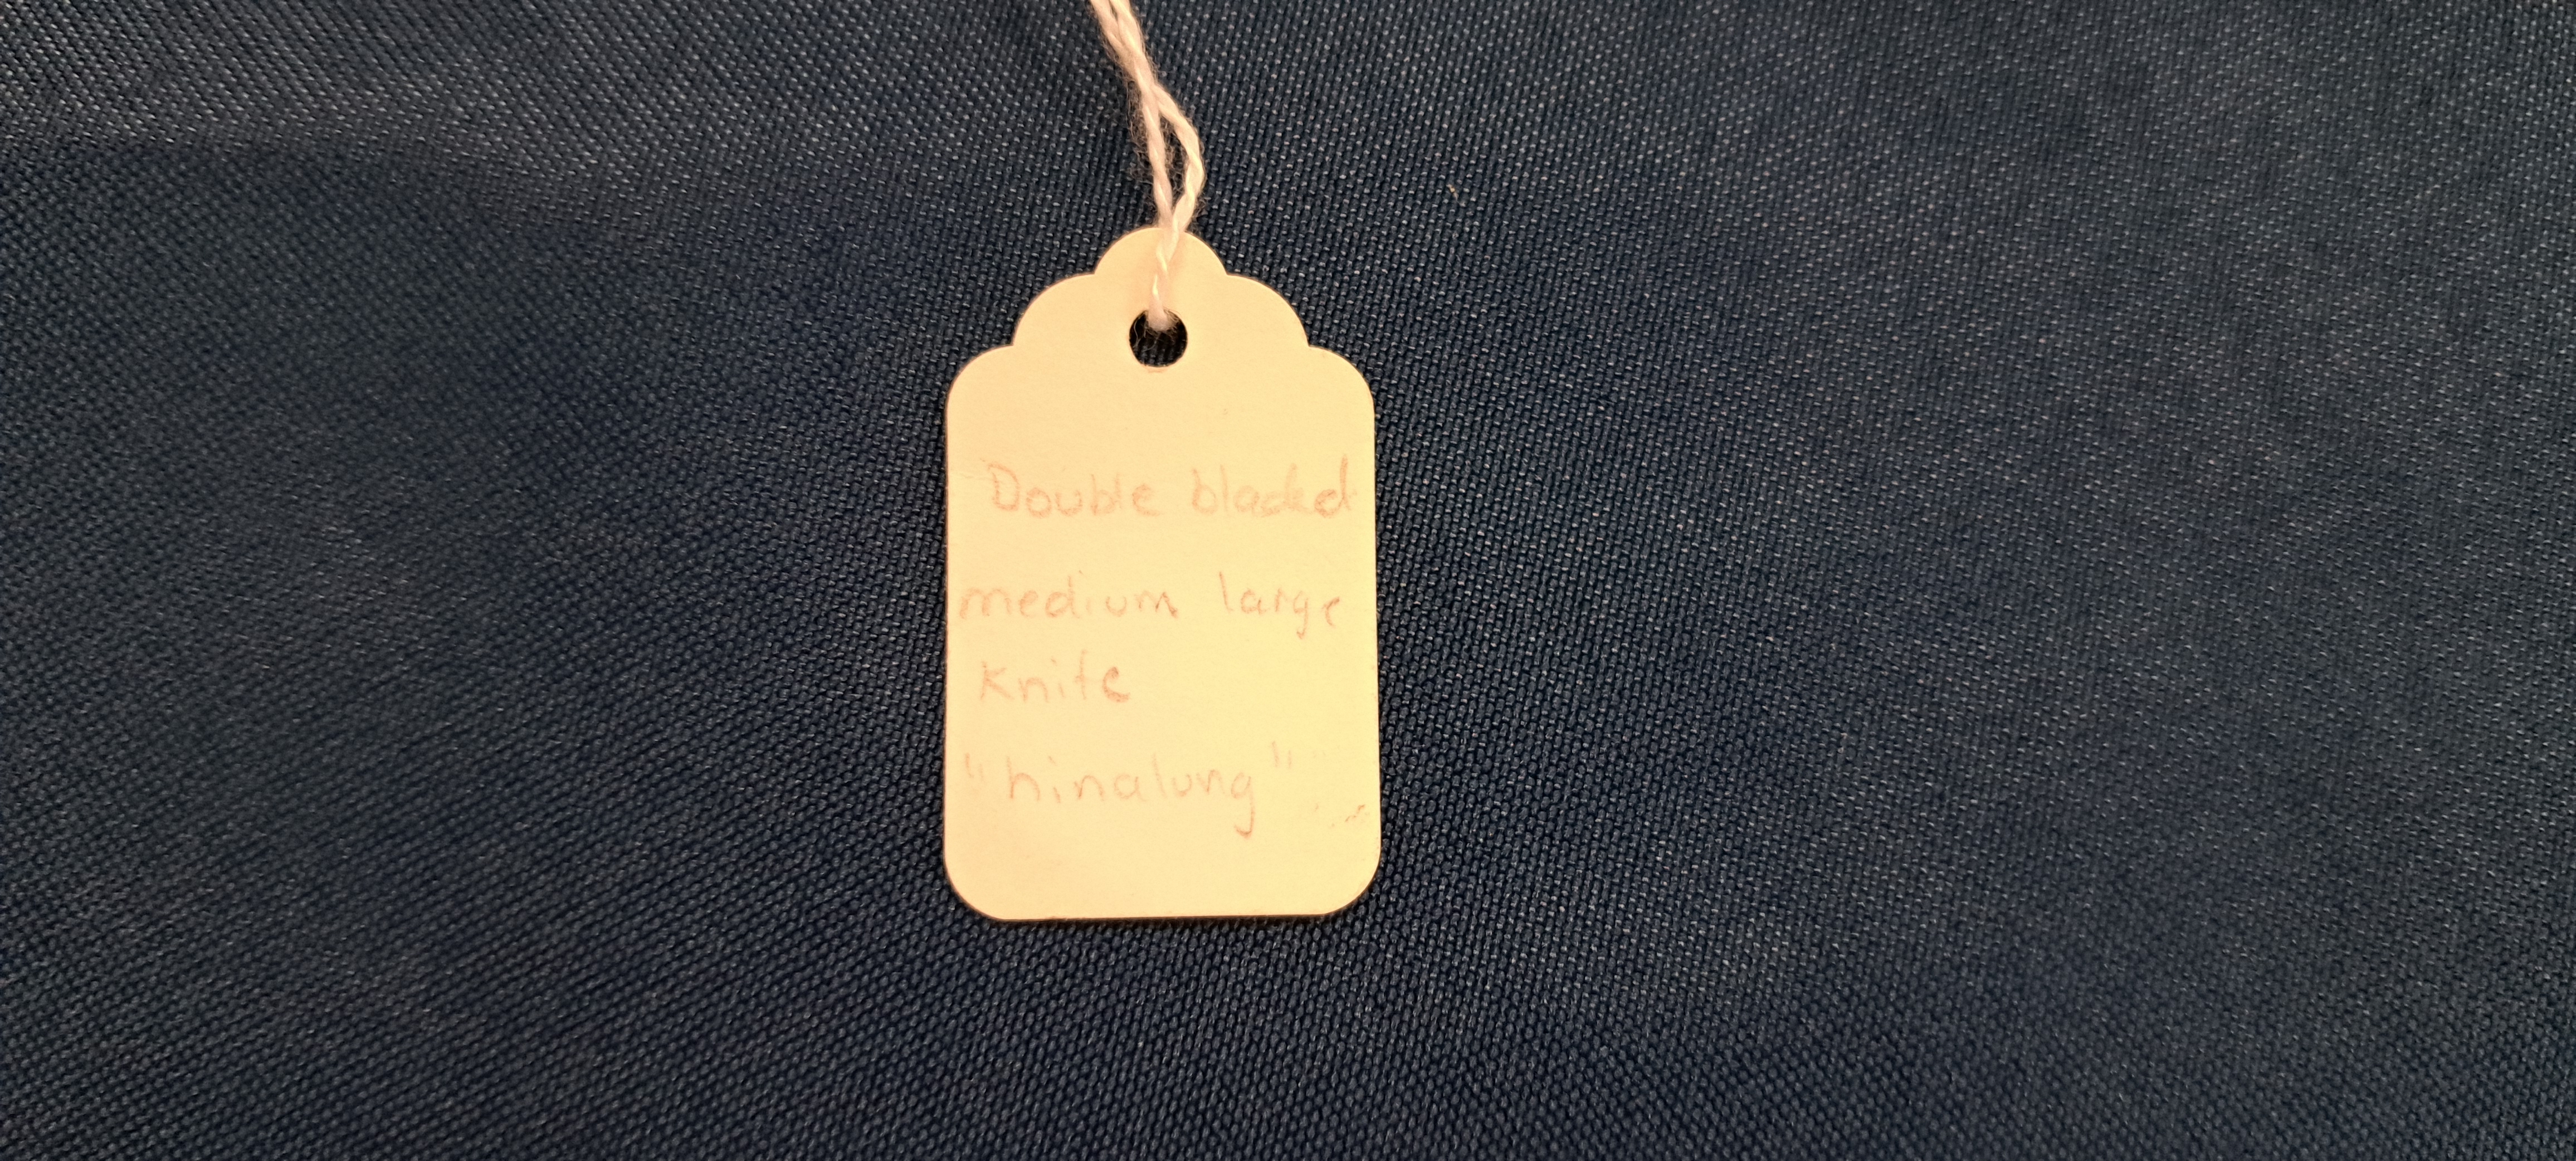 Double bladed
medium large
Knife
"hinalung"